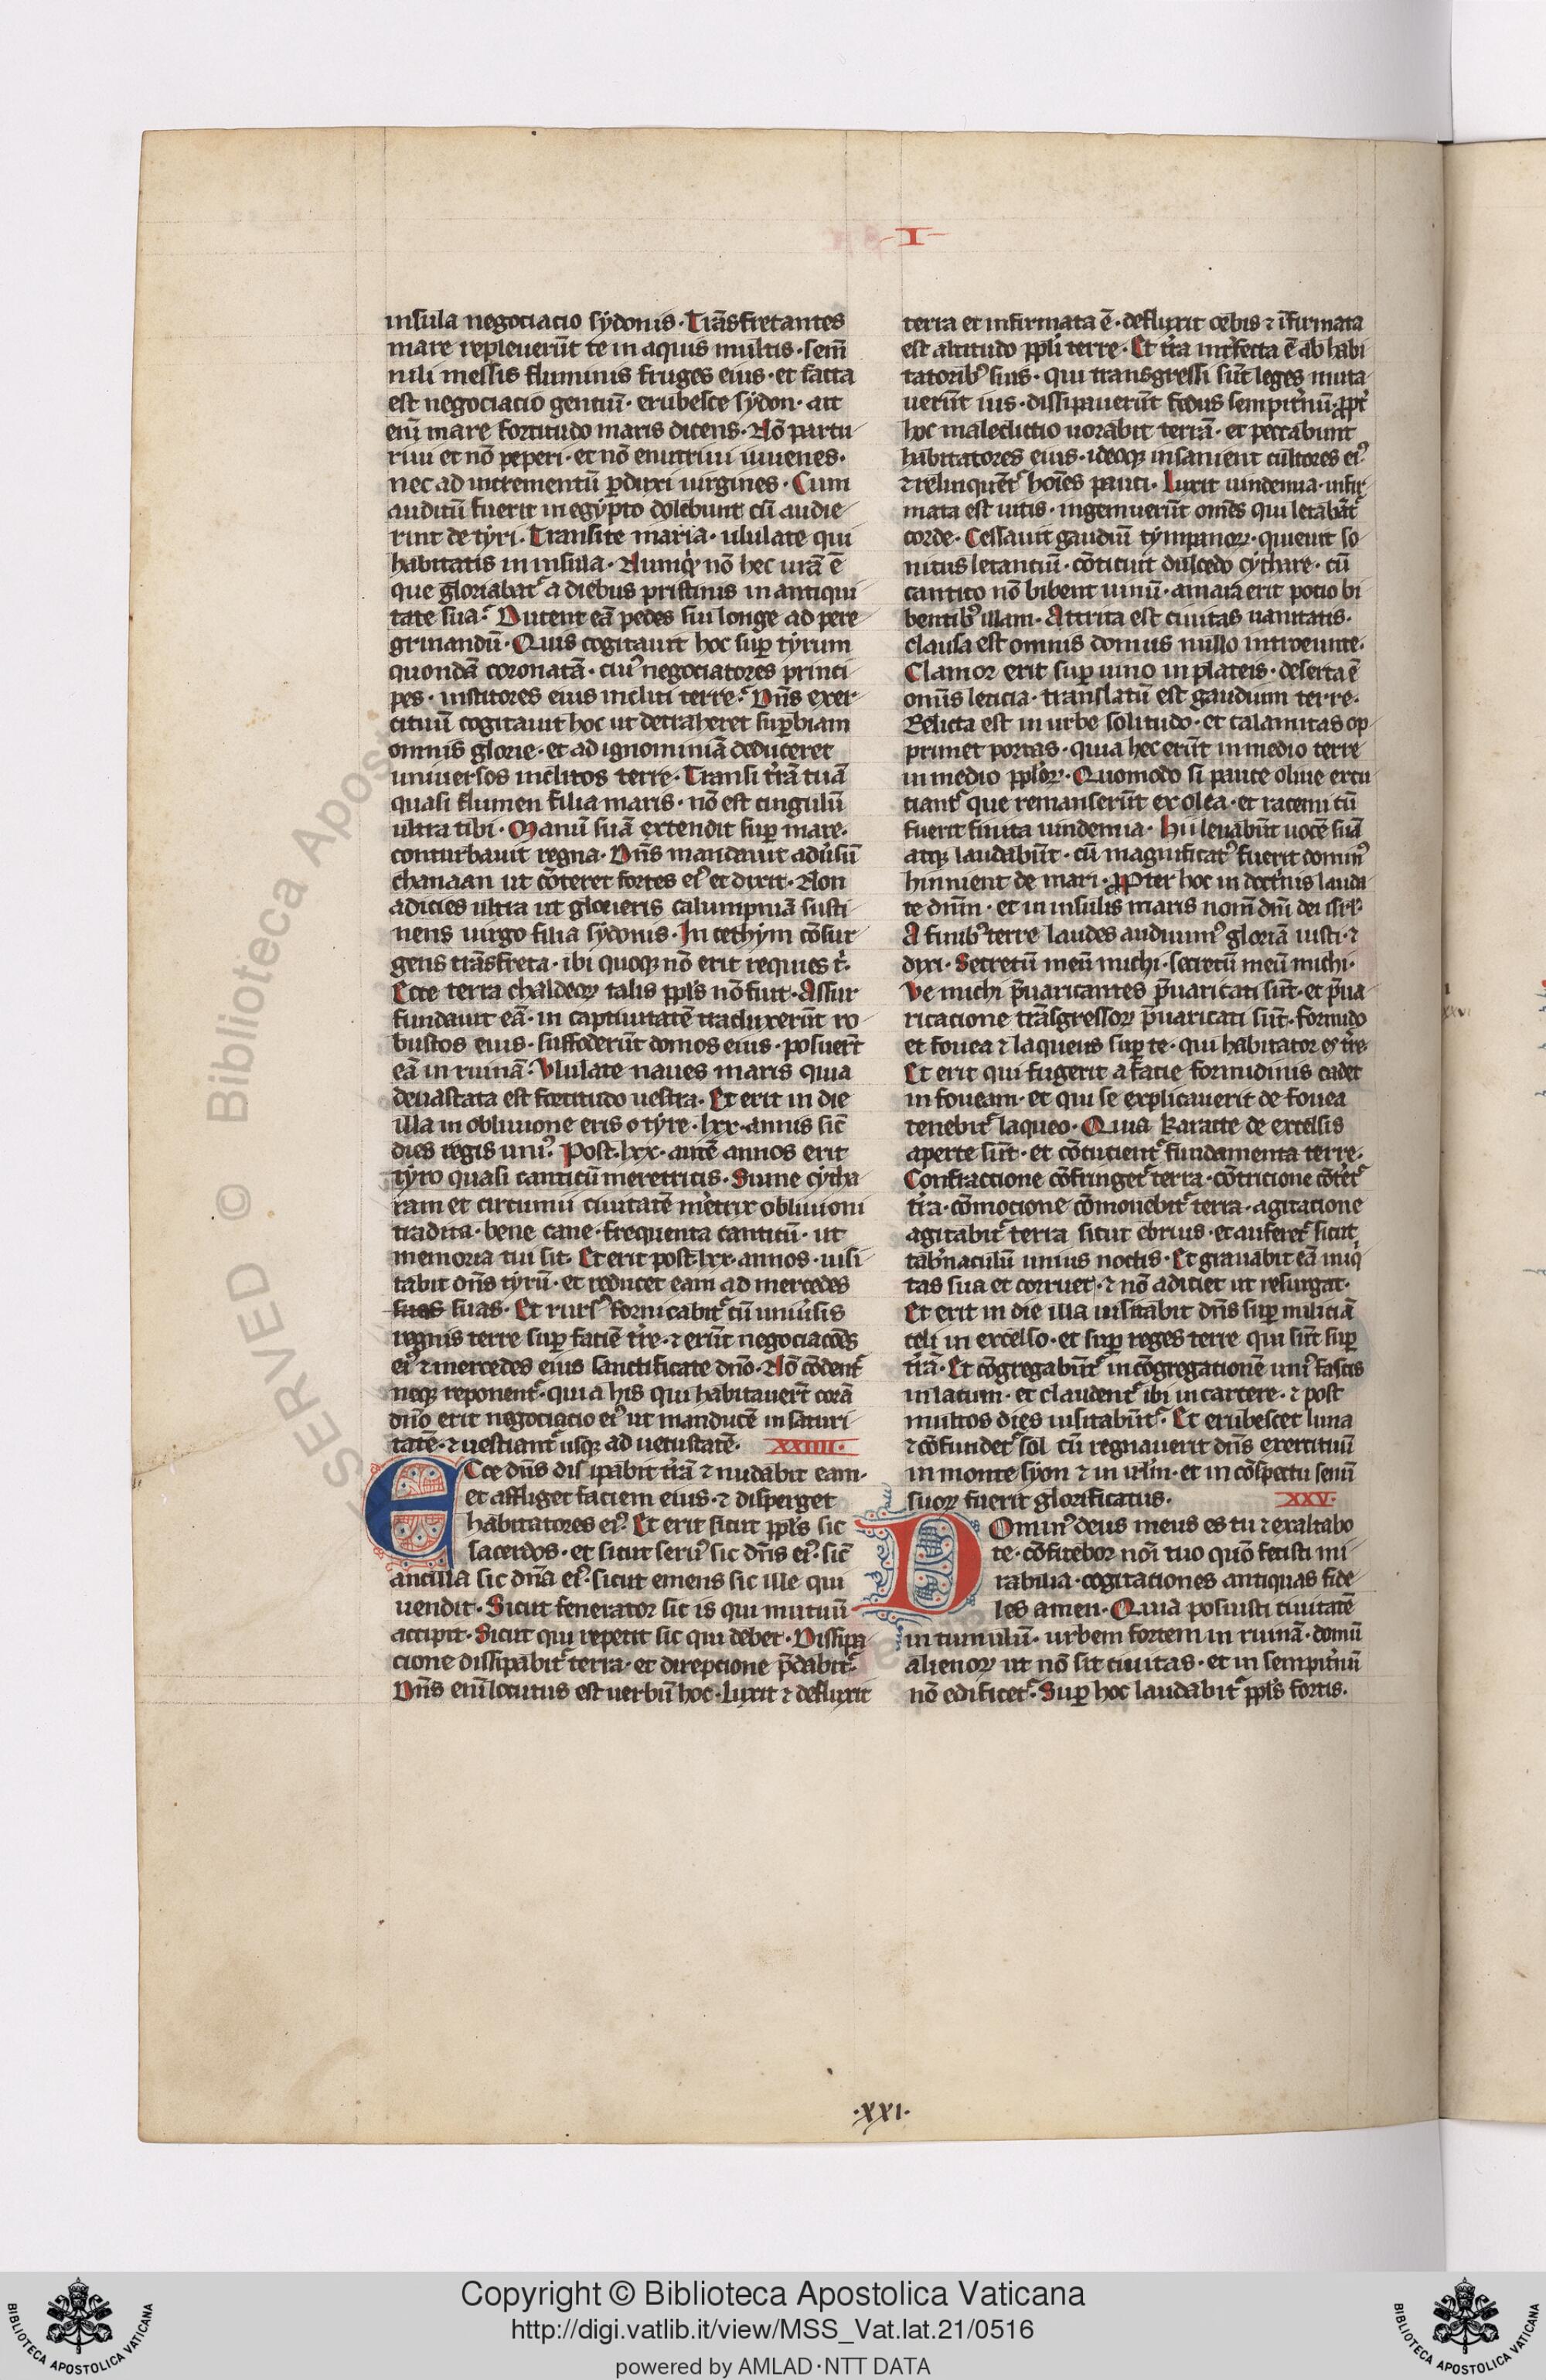 I
insula negociacio sydonis · Trãsfretantes
mare repleuerũt te in aquis multis · sem̃
nili messis fluminis fruges eius · et facta
est negociacio gentiũ · erubesce sydon · ait
eni᷒ mare fortitudo maris dicens · Nõ partu
riui et nõ peperi · et nõ enutriui iuuenes ·
nec ad incrementũ ꝑduxi uirgines · Cum
auditũ fuerit in egypto dolebunt cũ audie
rint de tyri · Transite maria · ululate qui
habitatis in insula · Nunqͥ nõ hec urã ẽ
que gloriabat᷑ a diebus pristinis in antiqui
tate sua · Ducent eã pedes sui longe ad pere
grinandũ · Quis cogitauit hoc suꝑ tyrum
quondã coronatã · ciuꝰ negociatores princi
pes · institores eius incliti terre · Dñs exer
cituũ cogitauit hoc ut detraheret suꝑbiam
omnis glorie · et ad ignominiã deduceret
uniuersos inclitos terre · Transi tr̃ã tuã
quasi flumen filia maris · nõ est cingulũ
ultra tibi · Manũ suã extendit suꝑ mare ·
conturbauit regna · Dñs mandauit adu̾sũ
chanaan ut cõteret fortes eiꝰ et dixit · Non
adicies ultra ut glorieris calumpniã susti
nens uirgo filia sydonis · In cethym cõsur
gens trãsfreta · ibi quoqꝫ nõ erit requies t̾ ·
Ecce terra chaldeoꝝ talis ppl̾s nõ fuit · Assur
fundauit eã · in captiuitatẽ traduxerũt ro
bustos eius · suffoderũt domos eius · posuer̃t
eã in ruinã · Vlulate naues maris quia
deuastata est fortitudo uestra · Et erit in die
illa in obliuione eris o tyre · lxx · annis sic̃
dies regis uniꝰ · Post · lxx · autẽ annos erit
tyro quasi canticũ meretricis · Sume cytha
ram et circumi ciuitatẽ me̾trix obliuioni
tradita · bene cane · frequenta canticũ · ut
memoria tui sit · Et erit post · lxx · annos · uisi
tabit dñs tyrũ · et reducet eam ad mercedes
suas suas · Et rursꝰ fornicabit᷑ cũ uniu̾sis
regnis terre suꝑ faciẽ tr̃e · ⁊ erũt negociacões
eiꝰ ⁊ mercedes eius sanctificate dño · Nõ cõdent᷑
neqꝫ reponent᷑ · quia his qui habitauer̃t corã
dño erit negociacio eiꝰ ut manducẽ in saturi
tatẽ · ⁊ uestiant᷑ usqꝫ ad uetustatẽ · XXIIII ·
ECce dñs dissipabit tr̃ã ⁊ nudabit eam ·
et affliget faciem eius · ⁊ disperget
habitatores eiꝰ · Et erit sicut ppl̾s sic
sacerdos · et sicut seruꝰ sic dñs eiꝰ · sic̃
ancilla sic dña eiꝰ · sicut emens sic ille qui
uendit · Sicut fenerator sic is qui mutuũ
accipit · Sicut qui repetit sic qui debet · Dissipa
cione dissipabit᷑ terra · et direpcione p̃dabit᷑ ·
Dñs eni᷒ locutus est uerbũ hoc · luxit ⁊ defluxit
terra et infirmata ẽ · defluxit orbis ⁊ ĩfirmata
est altitudo ppl̾i terre · Et tr̃a int̾fecta ẽ ab habi
tatoribꝰ suis · qui transgressi sũt leges muta
uerũt ius · dissipauerũt fedus sempit̾nũ · ꝓpt̾
hoc maledictio uorabit terrã · et peccabunt
habitatores eius · ideoqꝫ insanient cultores eiꝰ
⁊ relinquẽt᷑ hoĩes pauci · Luxit uindemia · infir
mata est uitis · ingemuerũt om̃s qui letabãt᷑
corde · Cessauit gaudiũ tympanoꝝ · quieuit so
nitus letantiũ · cõticuit dulcedo cythare · cũ
cantico nõ bibent uinũ · amara erit potio bi
bentibꝰ illam · Attrita est ciuitas uanitatis ·
clausa est omnis domus nullo introeunte ·
Clamor erit suꝑ uino in plateis · deserta ẽ
om̃is leticia · translatũ est gaudium terre ·
Relicta est in urbe solitudo · et calamitas op
primet portas · quia hec erũt in medio terre
in medio ppl̾oꝝ · Quomodo si pauce oliue excu
ciant᷑ que remanserũt ex olea · et racemi cũ
fuerit finita uindemia · Hii leuabũt uocẽ suã
atqꝫ laudabũt · cũ magnificatꝰ fuerit dominꝰ
hinnient de mari · ꝓPter hoc in doct̾nis lauda
te dñm · et in insulis maris nom̃ dñi dei isrl̾ ·
A finibꝰ terre laudes audiuimꝰ gloriã iusti · ⁊
dixi · Secretũ meũ michi · secretũ meũ michi ·
Ve michi p̃uaricantes p̃uaricati sũt · et p̃ua
ricacione trãsgressoꝝ p̃uaricati sũt · formido
et fouea ⁊ laqueus suꝑ te · qui habitator es tr̃e ·
Et erit qui fugerit a facie formidinis cadet
in foueam · et qui se explicauerit de fouea
tenebit᷑ laqueo · Quia Karacte de excelsis
aperte sũt · et cõcucient᷑ fundamenta terre ·
Confractione cõfringet᷑ terra · cõtricione cõt̾et᷑
tr̃a · cõmocione cõmouebit᷑ terra · agitacione
agitabit᷑ terra sicut ebrius · et auferet᷑ sicut
tab̾naculũ unius noctis · Et grauabit eã iniqͥ
tas sua et corruet · ⁊ nõ adiciet ut resurgat ·
Et erit in die illa uisitabit dñs suꝑ miliciã
celi in excelso · et suꝑ reges terre qui sũt suꝑ
tr̃ã · Et cõgregabũt᷑ in cõgregationẽ uniꝰ fascis
in lacum · et claudent᷑ ibi in carcere · ⁊ post
multos dies uisitabũt᷑ · Et erubescet luna
⁊ cõfundet᷑ sol cũ regnauerit dñs exercituũ
in monte syon ⁊ in irl̾m · et in cõspectu senũ
suoꝝ fuerit glorificatus · XXV ·
DOminꝰ deus meus es tu ⁊ exaltabo
te · cõfitebor noĩ tuo quõ fecisti mi
rabilia · cogitationes antiquas fide
les amen · Quia posuisti ciuitatẽ
in tumulũ · urbem fortem in ruinã · domũ
alienoꝝ ut nõ sit ciuitas · et in sempit̾nũ
nõ edificet᷑ · Super hoc laudabit᷑ ppl̾s fortis ·
· xxi ·
© Biblioteca Apost
SERVED
Copyright © Biblioteca Apostolica Vaticana
http://digi.vatlib.it/view/MSS_Vat.lat.21/0516
powered by AMLAD·NTT DATA
BIBLIOTECA APOSTOLICA VATICANA
BIBLIOTECA APOSTOLICA VATICANA